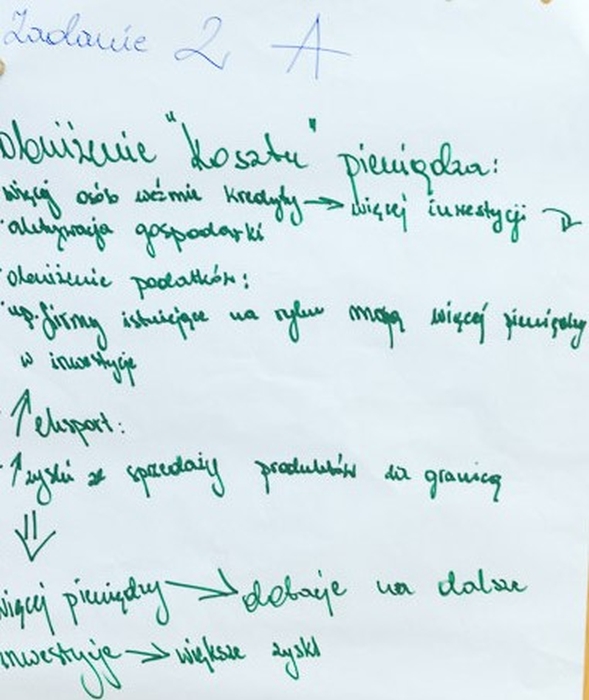 Zadanie 2 A
obniżenie "kosztu" pieniądza:
więcej osób weźmie kredyty → więcej inwestycji →
aktywacja gospodarki
obniżenie podatków:
np. firmy istniejące na rynku mają więcej pieniędzy
w inwestycje
↑ eksport:
↑ zyski ze sprzedaży produktów za granicą
⇓
więcej pieniędzy → dotacje na dalsze
inwestycje → większe zyski